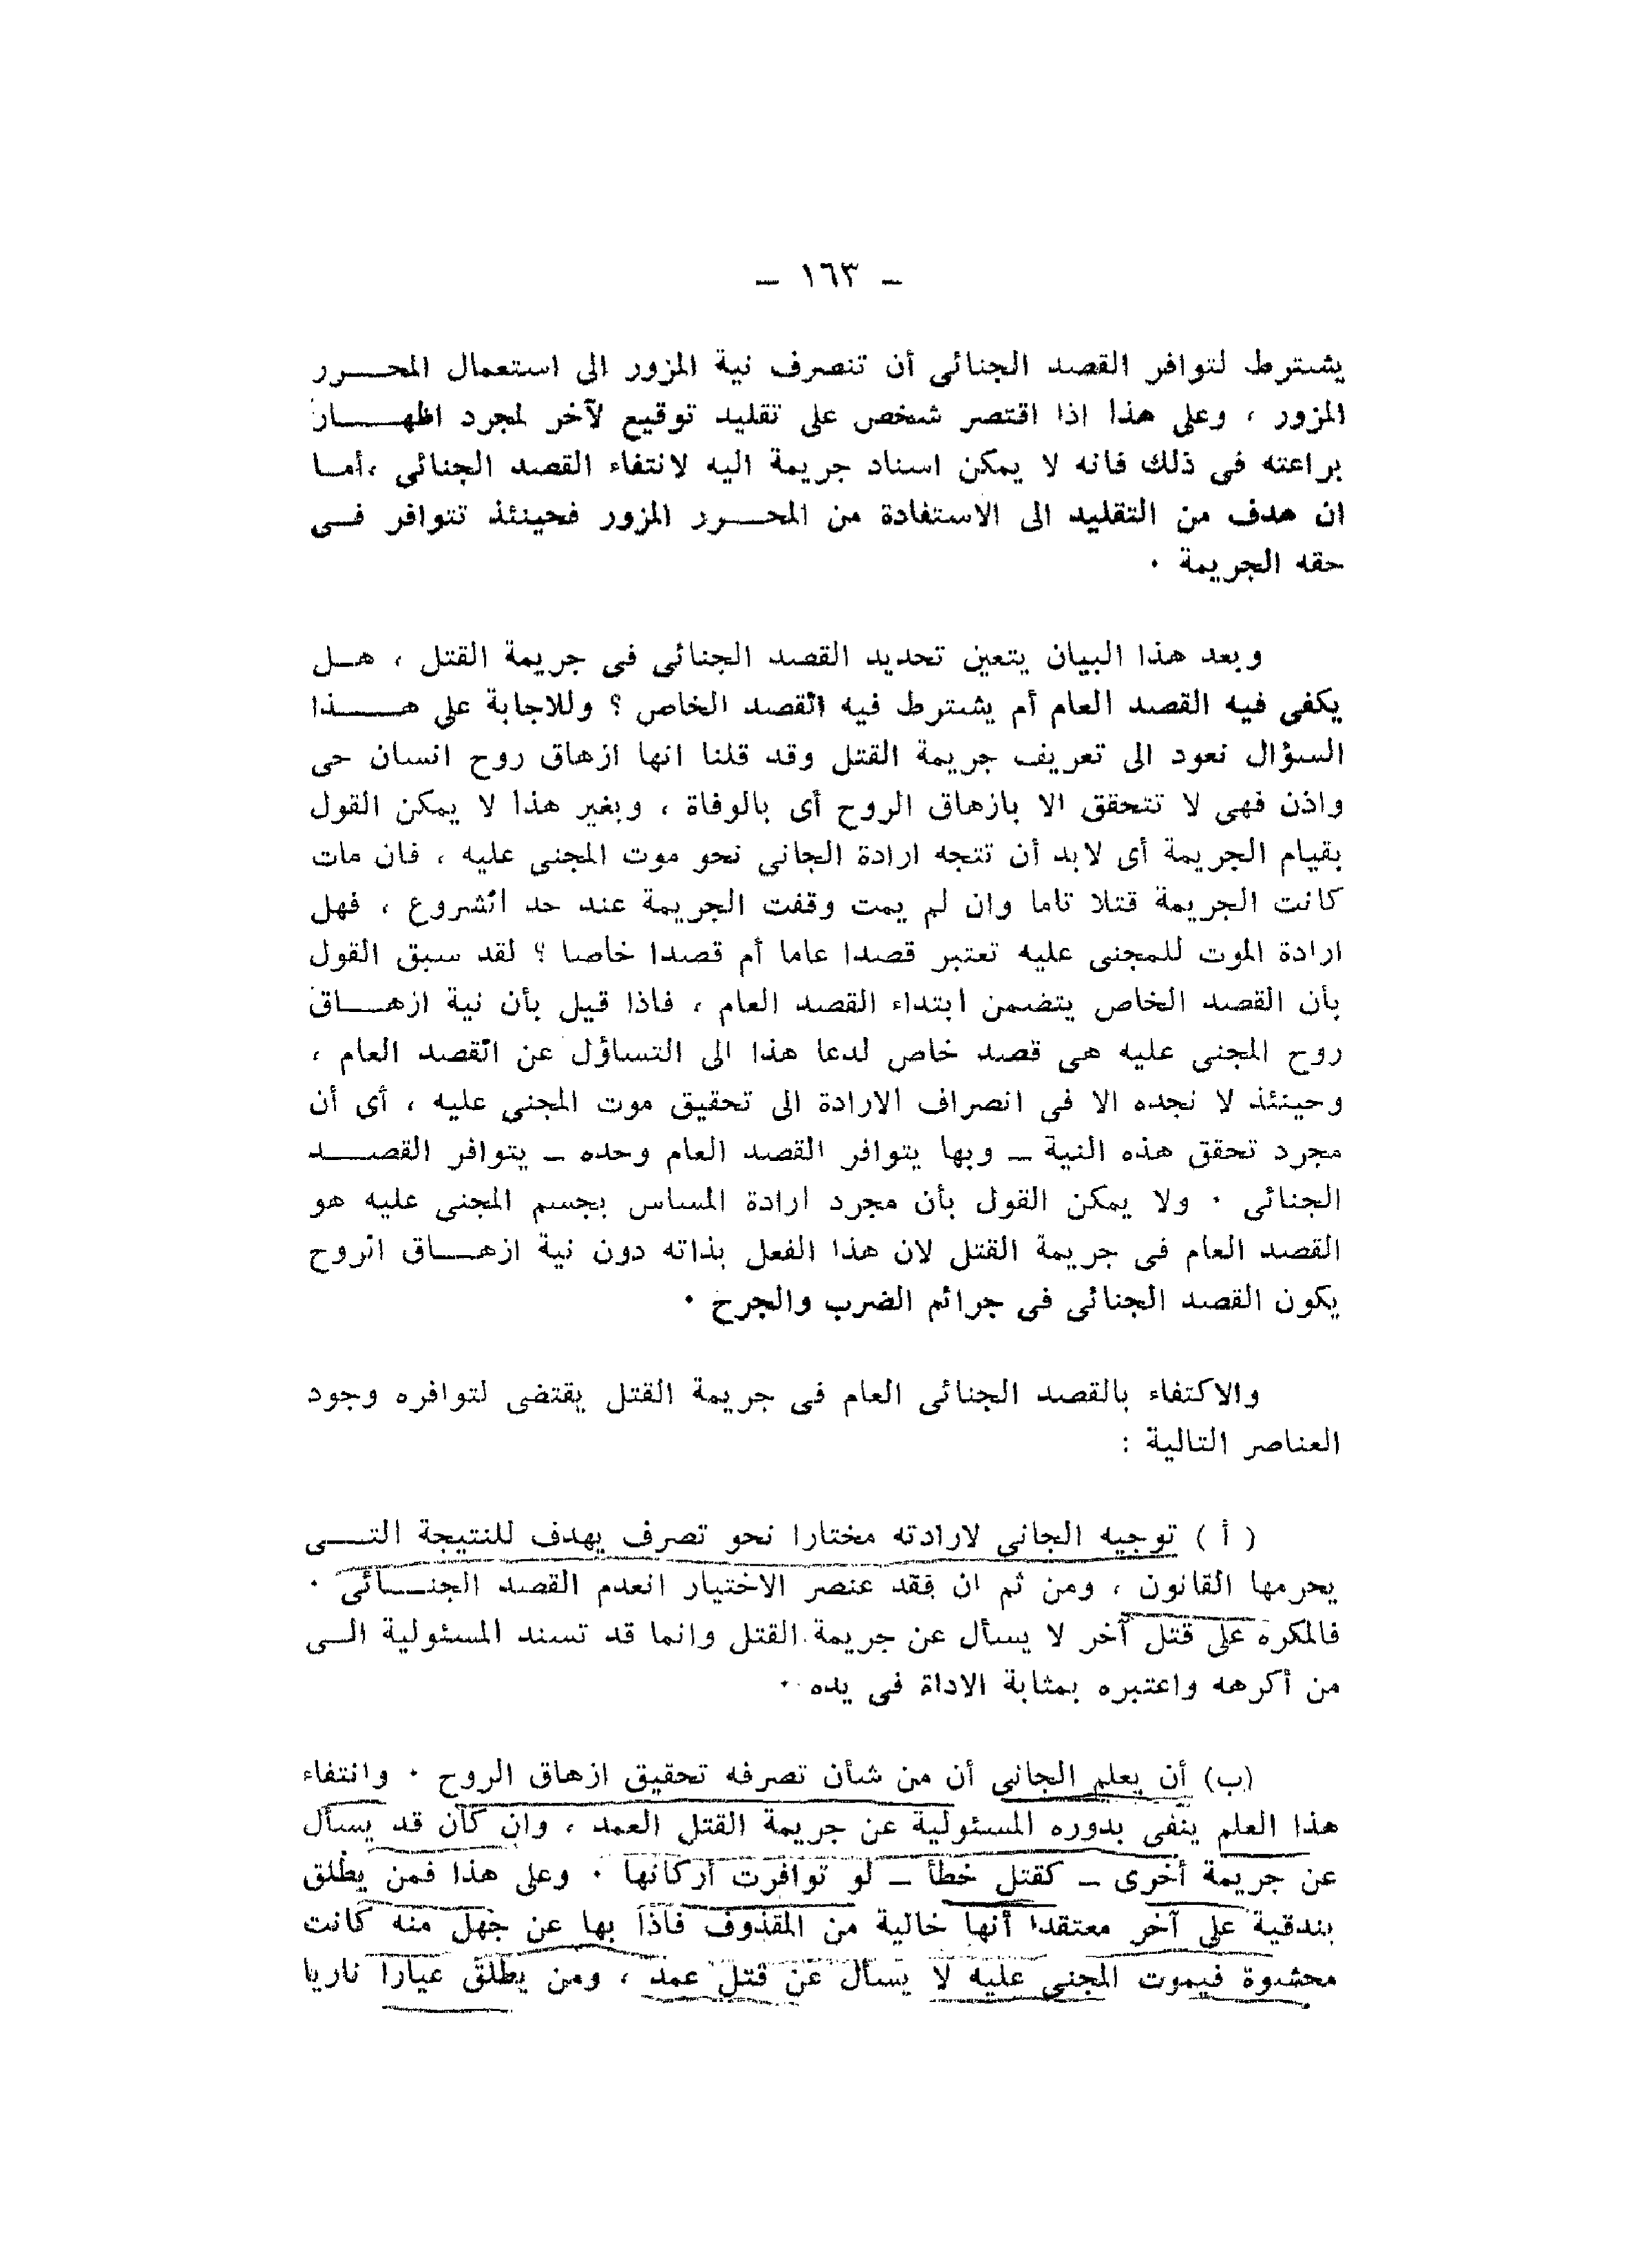 – ١٦٣ –
يشترط لتوافر القصد الجنائى أن تنصرف نية المزور الى استعمال المحرر
المزور ، وعلى هذا اذا اقتصر شخص على تقليد توقيع لآخر لمجرد اظهار
براعته فى ذلك فانه لا يمكن اسناد جريمة اليه لانتفاء القصد الجنائى ،أما
ان هدف من التقليد الى الاستفادة من المحرر المزور فحينئذ تتوافر فى
حقه الجريمة ٠
وبعد هذا البيان يتعين تحديد القصد الجنائى فى جريمة القتل ، هل
يكفى فيه القصد العام أم يشترط فيه القصد الخاص ؟ وللاجابة على هذا
السؤال نعود الى تعريف جريمة القتل وقد قلنا انها ازهاق روح انسان حى
واذن فهى لا تتحقق الا بازهاق الروح أى بالوفاة ، وبغير هذا لا يمكن القول
بقيام الجريمة أى لابد أن تتجه ارادة الجانى نحو موت المجنى عليه ، فان مات
كانت الجريمة قتلا تاما وان لم يمت وقفت الجريمة عند حد الشروع ، فهل
ارادة الموت للمجنى عليه تعتبر قصدا عاما أم قصدا خاصا ؟ لقد سبق القول
بأن القصد الخاص يتضمن ابتداء القصد العام ، فاذا قيل بأن نية ازهاق
روح المجنى عليه هى قصد خاص لدعا هذا الى التساؤل عن القصد العام ،
وحينئذ لا نجده الا فى انصراف الارادة الى تحقيق موت المجنى عليه ، أى أن
مجرد تحقق هذه النية – وبها يتوافر القصد العام وحده – يتوافر القصد
الجنائى ٠ ولا يمكن القول بأن مجرد ارادة المساس بجسم المجنى عليه هو
القصد العام فى جريمة القتل لان هذا الفعل بذاته دون نية ازهاق الروح
يكون القصد الجنائى فى جرائم الضرب والجرح ٠
والاكتفاء بالقصد الجنائى العام فى جريمة القتل يقتضى لتوافره وجود
العناصر التالية :
( أ ) توجيه الجانى لارادته مختارا نحو تصرف يهدف للنتيجة التى
يحرمها القانون ، ومن ثم ان فقد عنصر الاختيار انعدم القصد الجنائى ٠
فالمكره على قتل آخر لا يسأل عن جريمة القتل وانما قد تسند المسئولية الى
من أكرهه واعتبره بمثابة الاداة فى يده ٠
(ب) أن يعلم الجانى أن من شأن تصرفه تحقيق ازهاق الروح ٠ وانتفاء
هذا العلم ينفى بدوره المسئولية عن جريمة القتل العمد ، وان كان قد يسأل
عن جريمة أخرى – كقتل خطأ – لو توافرت أركانها ٠ وعلى هذا فمن يطلق
بندقية على آخر معتقدا أنها خالية من المقذوف فاذا بها عن جهل منه كانت
محشوة فيموت المجنى عليه لا يسأل عن قتل عمد ، ومن يطلق عيارا ناريا